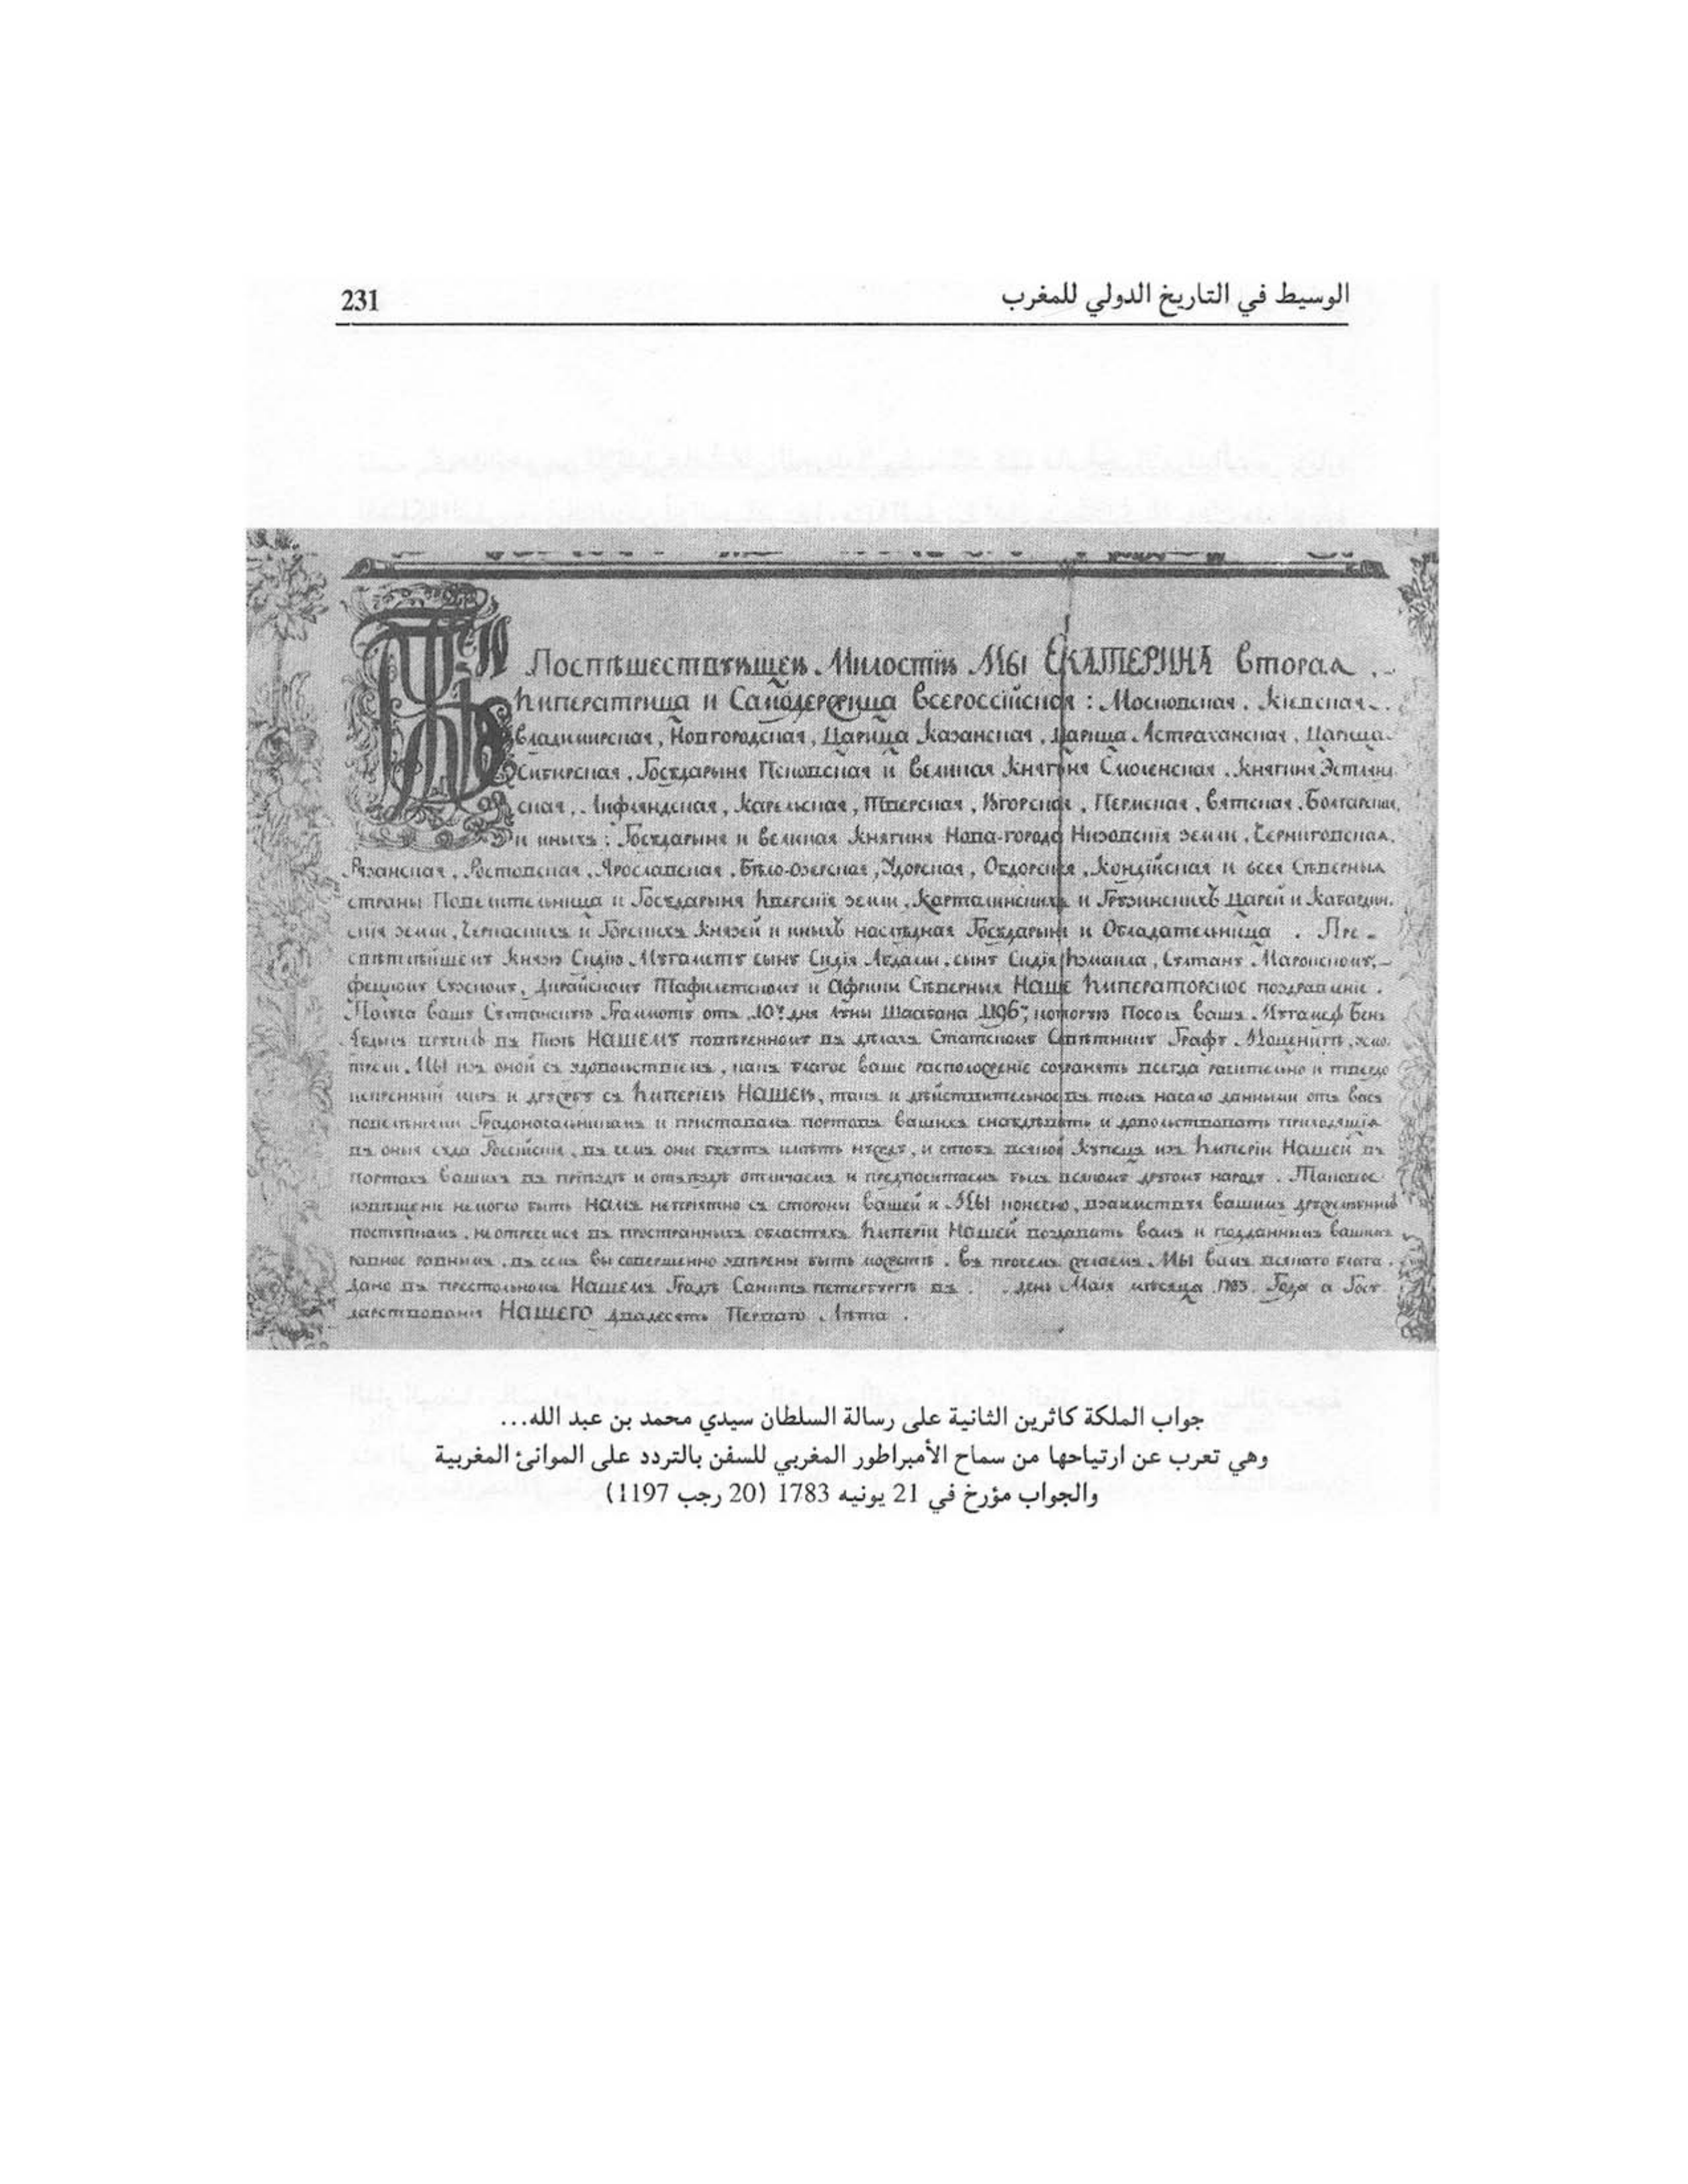 الوسيط في التاريخ الدولي للمغرب
231
Поспѣшествующею Милостїю МЫ ЕКАТЕРИНА Вторая
Императрица и Самодержица Всероссїйская : Московская , Кіевская
Владимирская , Новгородская , Царица Казанская , Царица Астраханская , Царица
Сибирская , Государыня Псковская и Великая Княгиня Смоленская , Княгиня Эстлянд
ская , Лифляндская , Карельская , Тверская , Югорская , Пермская , Вятская , Болгарская
и иныхъ : Государыня и Великая Княгиня Нова-города Низовскїя земли , Черниговская ,
Рязанская , Ростовская , Ярославская , Бѣло-Озерская , Удорская , Обдорская , Кондїйская и всея Сѣверныя
страны Повелительница и Государыня Иверскїя земли , Карталинскихъ и Грузинскихъ Царей и Кабардин
скїя земли , Черкаскихъ и Горскихъ Князей и иныхъ наслѣдная Государыня и Обладательница . Пре
свѣтлѣйшему Князю Сидїю Мугамету сыну Сидїя Абдалы , сыну Сидїя Измаила , Султану Марокскому ,
фецкому Сузскому , Дирайскому Тафилетскому и Африки Сѣверныя Наше Императорское поздравленїе .
Получа вашу Султанскую Грамоту отъ 10го дня луны Шаабана 1196, которую Посолъ вашъ Мугамед Бенъ
въ Пизѣ НАШЕМУ повѣренному въ дѣлахъ Статскому Совѣтнику Графу Моценигу
МЫ изъ оной съ удовольствиемъ , какъ благое ваше расположенїе сохранять всегда рачительно и твердо
искренный миръ и дружбу съ Имперїею НАШЕЮ , такъ и дѣйствительное въ томъ начало данными отъ васъ
повелѣнїями Градоначальникамъ и приставамъ портовъ вашихъ снабдѣвать и довольствовать приходящїя
въ оныя суда Россїйскїя , въ чемъ они будутъ имѣть нужду , и чтобъ всякой Купецъ изъ Имперїи НАШЕЙ въ
портахъ вашихъ въ прїѣздѣ и отъѣздѣ отличаемъ и предпочитаемъ былъ всякому другому народу . Таковое
извѣщенїе не могло быть НАМЪ непрїятно съ стороны вашей и МЫ конечно , взаимствуя вашимъ дружественнымъ
поступкамъ , не отречемся въ пространныхъ областяхъ Имперїи НАШЕЙ воздавать вамъ и подданнымъ вашимъ
равное равнымъ , въ чемъ вы совершенно увѣрены быть можете . Въ прочемъ желаемъ МЫ вамъ всякаго блага .
Дано въ престольномъ НАШЕМЪ Градѣ Санктъ петербургѣ въ . день Маїя мѣсяца 1783 . Года а Госу
дарствованїя НАШЕГО двадесять Перваго Лѣта .
جواب الملكة كاثرين الثانية على رسالة السلطان سيدي محمد بن عبد الله...
وهي تعرب عن ارتياحها من سماح الأمبراطور المغربي للسفن بالتردد على الموانئ المغربية
والجواب مؤرخ في 21 يونيه 1783 (20 رجب 1197)